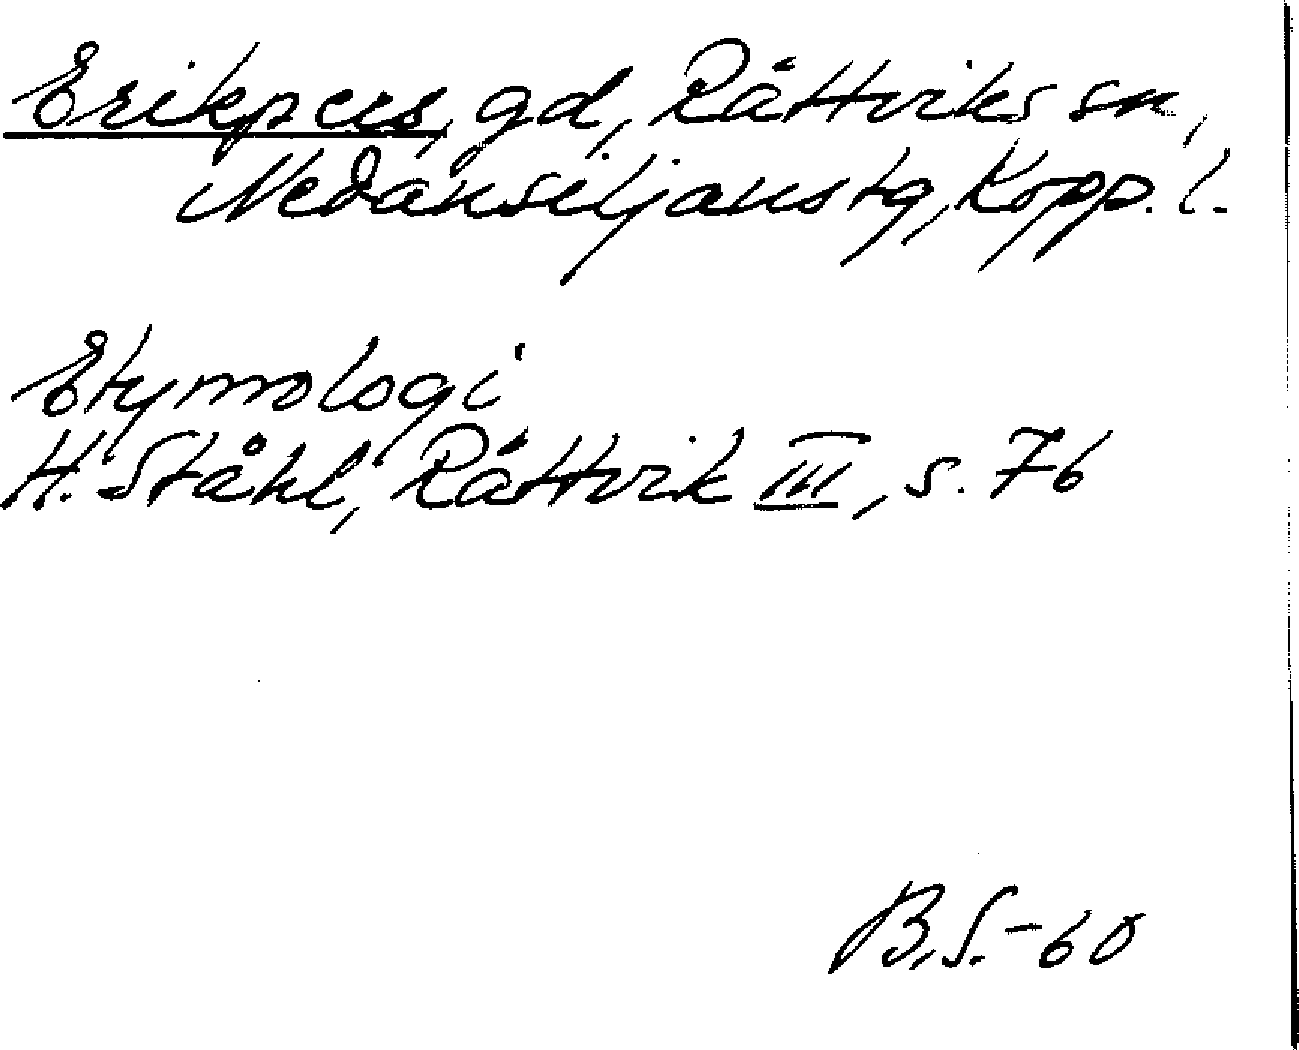 Erikpers, gd, Rättviks sn,
Nedansiljans tg, Kopp. l.
Etymologi
H. Ståhl, Rättvik III, s. 76
B.S.-60